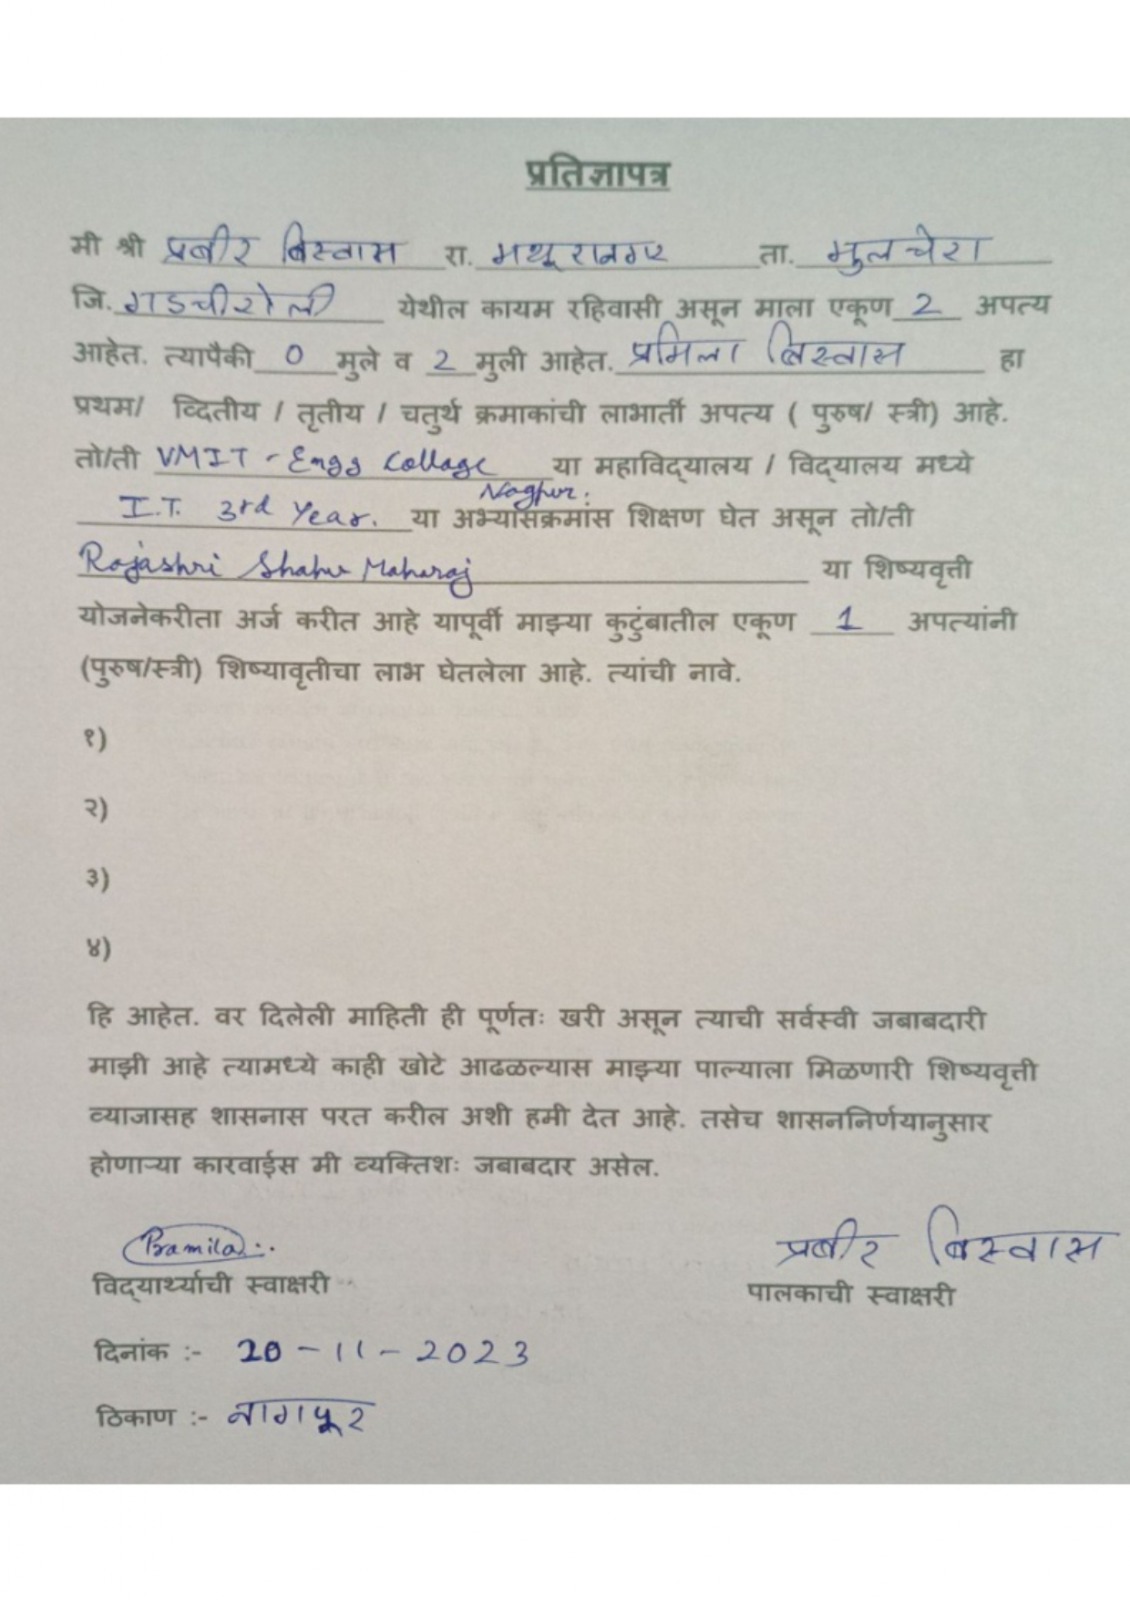 प्रतिज्ञापत्र
मी श्री प्रबीर बिस्वास रा. मथूरानगर ता. मुलचेरा
जि. गडचीरोली येथील कायम रहिवासी असून माला एकूण 2 अपत्य
आहेत. त्यापैकी 0 मुले व 2 मुली आहेत. प्रमिला बिस्वास हा
प्रथम/ व्दितीय / तृतीय / चतुर्थ क्रमाकांची लाभार्ती अपत्य ( पुरुष/ स्त्री) आहे.
तो/ती VMIT - Engg Collage या महाविद्यालय / विद्यालय मध्ये
Nagpur.
I.T. 3rd Year. या अभ्यासक्रमांस शिक्षण घेत असून तो/ती
Rajashri Shahu Maharaj या शिष्यवृत्ती
योजनेकरीता अर्ज करीत आहे यापूर्वी माझ्या कुटुंबातील एकूण 1 अपत्यांनी
(पुरुष/स्त्री) शिष्यावृतीचा लाभ घेतलेला आहे. त्यांची नावे.
१)
२)
३)
४)
हि आहेत. वर दिलेली माहिती ही पूर्णतः खरी असून त्याची सर्वस्वी जबाबदारी
माझी आहे त्यामध्ये काही खोटे आढळल्यास माझ्या पाल्याला मिळणारी शिष्यवृत्ती
व्याजासह शासनास परत करील अशी हमी देत आहे. तसेच शासननिर्णयानुसार
होणाऱ्या कारवाईस मी व्यक्तिशः जबाबदार असेल.
Pramila प्रबीर बिस्वास
विद्यार्थ्याची स्वाक्षरी पालकाची स्वाक्षरी
दिनांक :- 20-11-2023
ठिकाण :- नागपूर